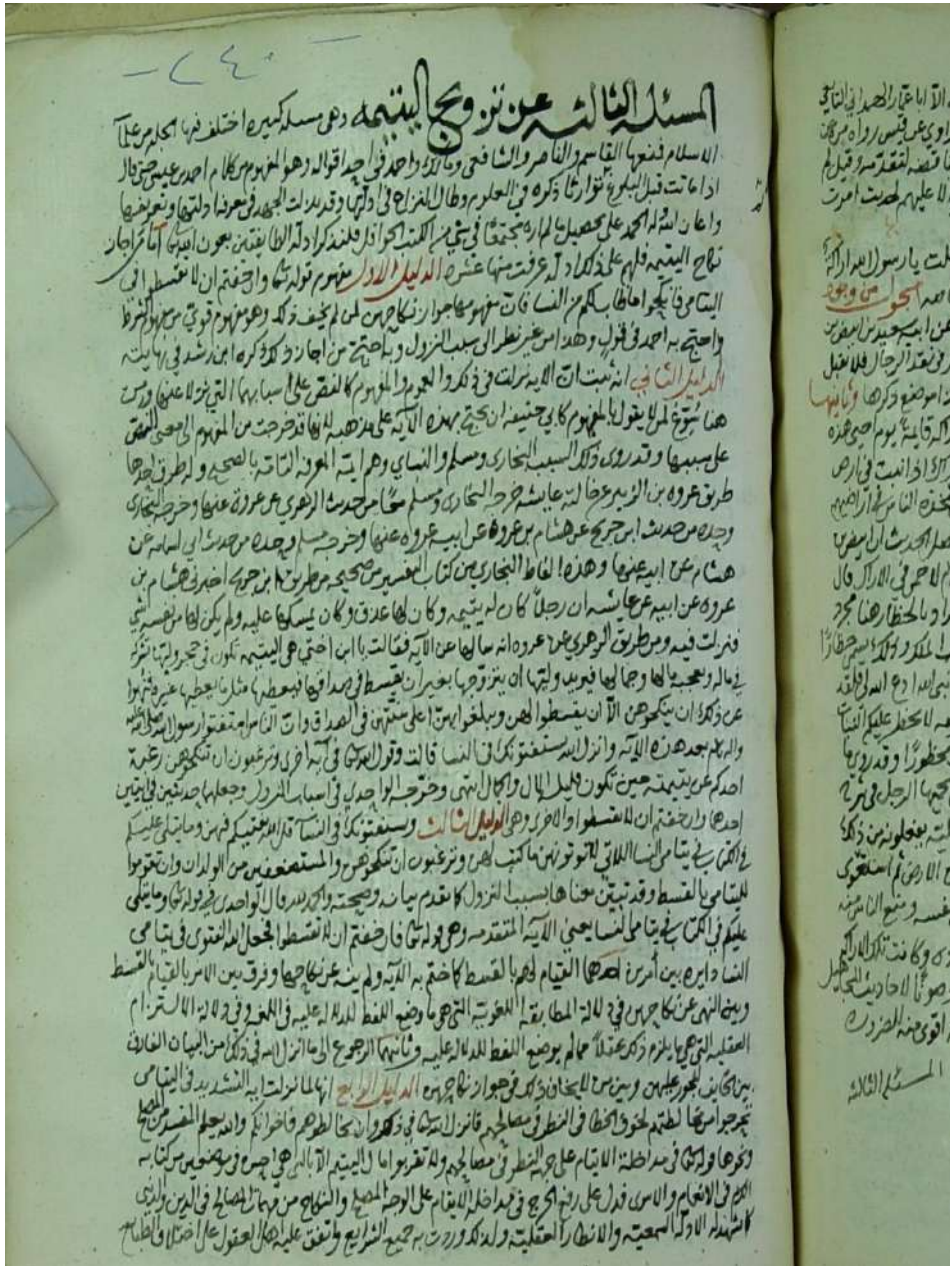 - ٢٤٠ -
المسئلة الثالثة عن تزويج اليتيمة وهي مسئلة كبيرة اختلف فيها الجلة من علماء
الاسلام فمنعها القاسم والناصر والشافعي ومالك واحمد في احد اقواله وهو المفهوم من كلام احمد بن عيسى حتى قال
اذا ماتت قبل البلوغ توارثا ذكره في العلوم وطال النزاع في ادلتها وقد بذلت الجهد في معرفة ادلتها وتعريفها
واعان الله وله الحمد على تحصيل ما لم اره مجتمعا في شي من الكتب الحوافل فلنذكر ادلة الطايفتين بعون الله اما من اجاز
نكاح اليتيمة فلهم على ذلك ادلة عرفت منها عشرة الدليل الاول مفهوم قوله تعالى وان خفتم ان لا تقسطوا في
اليتامى فانكحوا ما طاب لكم من النسا فان مفهومها جواز نكاحهن لمن لم يخف ذلك وهو مفهوم قوي من مفهوم الشرط
واحتج به احمد في قول وهذا من غير نظر الى سبب النزول وبه احتج من اجاز ذلك ذكره ابن رشد في نهايته
الدليل الثاني انه ثبت ان الاية نزلت في ذلك والعموم والمفهوم كالنص على اسبابهما التي نزلا عليها ومن
هنا يسوغ لمن لا يقول بالمفهوم كابي حنيفة ان يحتج بهذه الآية على مذهبه لانها قد خرجت من المفهوم الى معنى النص
على سببها وقد روى ذلك السبب البخاري ومسلم والنساي وهم ايمة المعرفة التامة بالصحيح وله طرق احدها
طريق عروة بن الزبير عن خالته عايشة خرجه البخاري ومسلم معا من حديث الزهري عن عروة عنها وخرجه البخاري
وحده من حديث ابن جريج عن هشام بن عروة عن ابيه عروة عنها وخرجه مسلم وحده من حديث ابي اسامة عن
هشام عن ابيه عنها وهذه الفاظ البخاري من كتاب التفسير من صحيحه من طريق ابن جريج اخبرني هشام بن
عروة عن ابيه عن عايشة ان رجلا كان له يتيمة وكان لها عذق وكان يمسكها عليه ولم يكن لها من نفسه شي
فنزلت فيه ومن طريق الزهري عن عروة انه سالها عن الآية فقالت يا ابن اختي هي اليتيمة تكون في حجر وليها تشركه
في ماله ويعجبه مالها وجمالها فيريد وليها ان يتزوجها بغير ان يقسط في صداقها فيعطيها مثل ما يعطيها غيره فنهوا
عن ذلك ان ينكحوهن الا ان يقسطوا لهن ويبلغوا بهن اعلى سنتهن في الصداق وان الناس استفتوا رسول الله صلى الله عليه
واله وسلم بعد هذه الآية وانزل الله يستفتونك في النسا قالت وقول الله تعالى في آية اخرى وترغبون ان تنكحوهن رغبة
احدكم عن يتيمته حين تكون قليلة المال والجمال انتهى وخرجه الواحدي في اسباب النزول وجعلها حديثين في ايتين
احدها وان خفتم ان لا تقسطوا والاخرى وهي الدليل الثالث ويستفتونك في النسا قل الله يفتيكم فيهن وما يتلى عليكم
في الكتاب في يتامى النسا اللاتي لا تؤتونهن ما كتب لهن وترغبون ان تنكحوهن والمستضعفين من الولدان وان تقوموا
لليتامى بالقسط وقد تبين معناها بسبب النزول كما تقدم بيانه وصحته والحمد لله قال الواحدي في قوله تعالى وما يتلى
عليكم في الكتاب في يتامى النسا يعني الآية المتقدمة وهي قوله تعالى فان خفتم ان لا تقسطوا فجعل الله الفتوى في يتامى
النسا دايرة بين أمرين احدهما القيام لهم بالقسط كما ختم به الآية ولم ينه عن نكاحها وفرق بين الامر بالقيام بالقسط
وبين النهي عن نكاحهن في دلالة المطابقة اللغوية التي هي ما وضع اللفظ للدلالة عليه في اللغة وفي دلالة الالتزام
العقلية التي هي ما يلزم ذلك عقلا مما لم يوضع اللفظ للدلالة عليه وثانيهما الرجوع الى ما انزل الله في ذلك من البيان الفارق
بين الخايف للجور عليهن وبين من لا يخاف ذلك في جواز نكاحهن الدليل الرابع انها لما نزلت اية التشديد في اليتامى
تحرجوا من مخالطتهم لخوف الخطا في النظر في مصالحهم فانزل الله تعالى في ذلك وان تخالطوهم فاخوانكم والله يعلم المفسد من المصلح
ونحوها قوله تعالى في مداخلة الايتام على جهة النظر في مصالحهم ولا تقربوا مال اليتيم الا بالتي هي احسن في موضعين من كتابه
الكريم في الانعام والاسرى فدل على رفع الحرج في مداخلة الايتام على الوجه المصلح والنكاح من مهمات المصالح في الدين والدنيا
كما شهد له الادلة السمعية والانظار العقلية ولذلك وردت به جميع الشرايع واتفق عليه اهل العقول على اختلاف الطبايع
المسئلة الثالثة